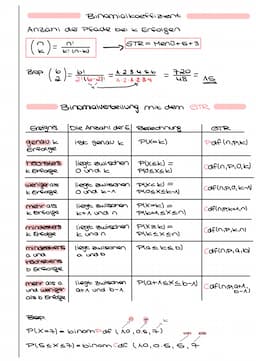 Binomialkoeffizient
Anzahl die Pfade bei k Erfolgen
(n k) = n! / k!·(n-k)! → GTR = Menü+5+3
Bsp (6 2) = 6! / 2!(6-2)! = 1·2·3·4·5·6 / 1·2·1·2·3·4 = 720 / 48 = 15
Binomialverteilung mit dem GTR
Ereignis | Die Anzahl der E | Berechnung | GTR
genau k Erfolge | ist genau k | P(X=k) | Pdf(n,p,k)
höchstens k Erfolge | liegt zwischen 0 und k | P(X≤k) = P(0≤X≤k) | Cdf(n,p,0,k)
weniger als k Erfolge | liegt zwischen 0 und k-1 | P(X<k) = P(X≤k-1) | Cdf(n,p,0,k-1)
mehr als k Erfolge | liegt zwischen k+1 und n | P(X>k) = P(k+1≤X≤n) | Cdf(n,p,k+1,n)
mindestens k Erfolge | liegt zwischen k und n | P(X≥k) = P(k≤X≤n) | Cdf(n,p,k,n)
mindestens a und höchstens b Erfolge | liegt zwischen a und b | P(a≤X≤b) | Cdf(n,p,a,b)
mehr als a und weniger als b Erfolge | liegt zwischen a+1 und b-1 | P(a+1≤X≤b-1) | Cdf(n,p,a+1, b-1)
Bsp:
P(X=7) = binomPdf (10,0.5,7)
P(5≤X≤7) = binomCdf (10,0.5,5,7